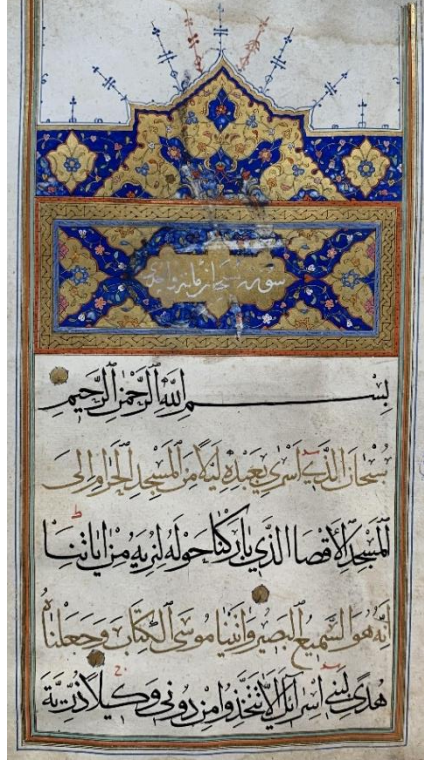 سورة سبحان مائة واحدى
بِسْمِ اللَّهِ الرَّحْمٰنِ الرَّحِيمِ
سُبْحَانَ الَّذِي أَسْرَى بِعَبْدِهِ لَيْلًا مِنَ الْمَسْجِدِ الْحَرَامِ إِلَى
الْمَسْجِدِ الْأَقْصَا الَّذِي بَارَكْنَا حَوْلَهُ لِنُرِيَهُ مِنْ اٰيَاتِنَا
إِنَّهُ هُوَ السَّمِيعُ الْبَصِيرُ وَاٰتَيْنَا مُوسَى الْكِتَابَ وَجَعَلْنَاهُ
هُدًى لِبَنِي اِسْرَائِلَ اَلَّا تَتَّخِذُوا مِنْ دُونِي وَكِيلًا ذُرِّيَّةَ